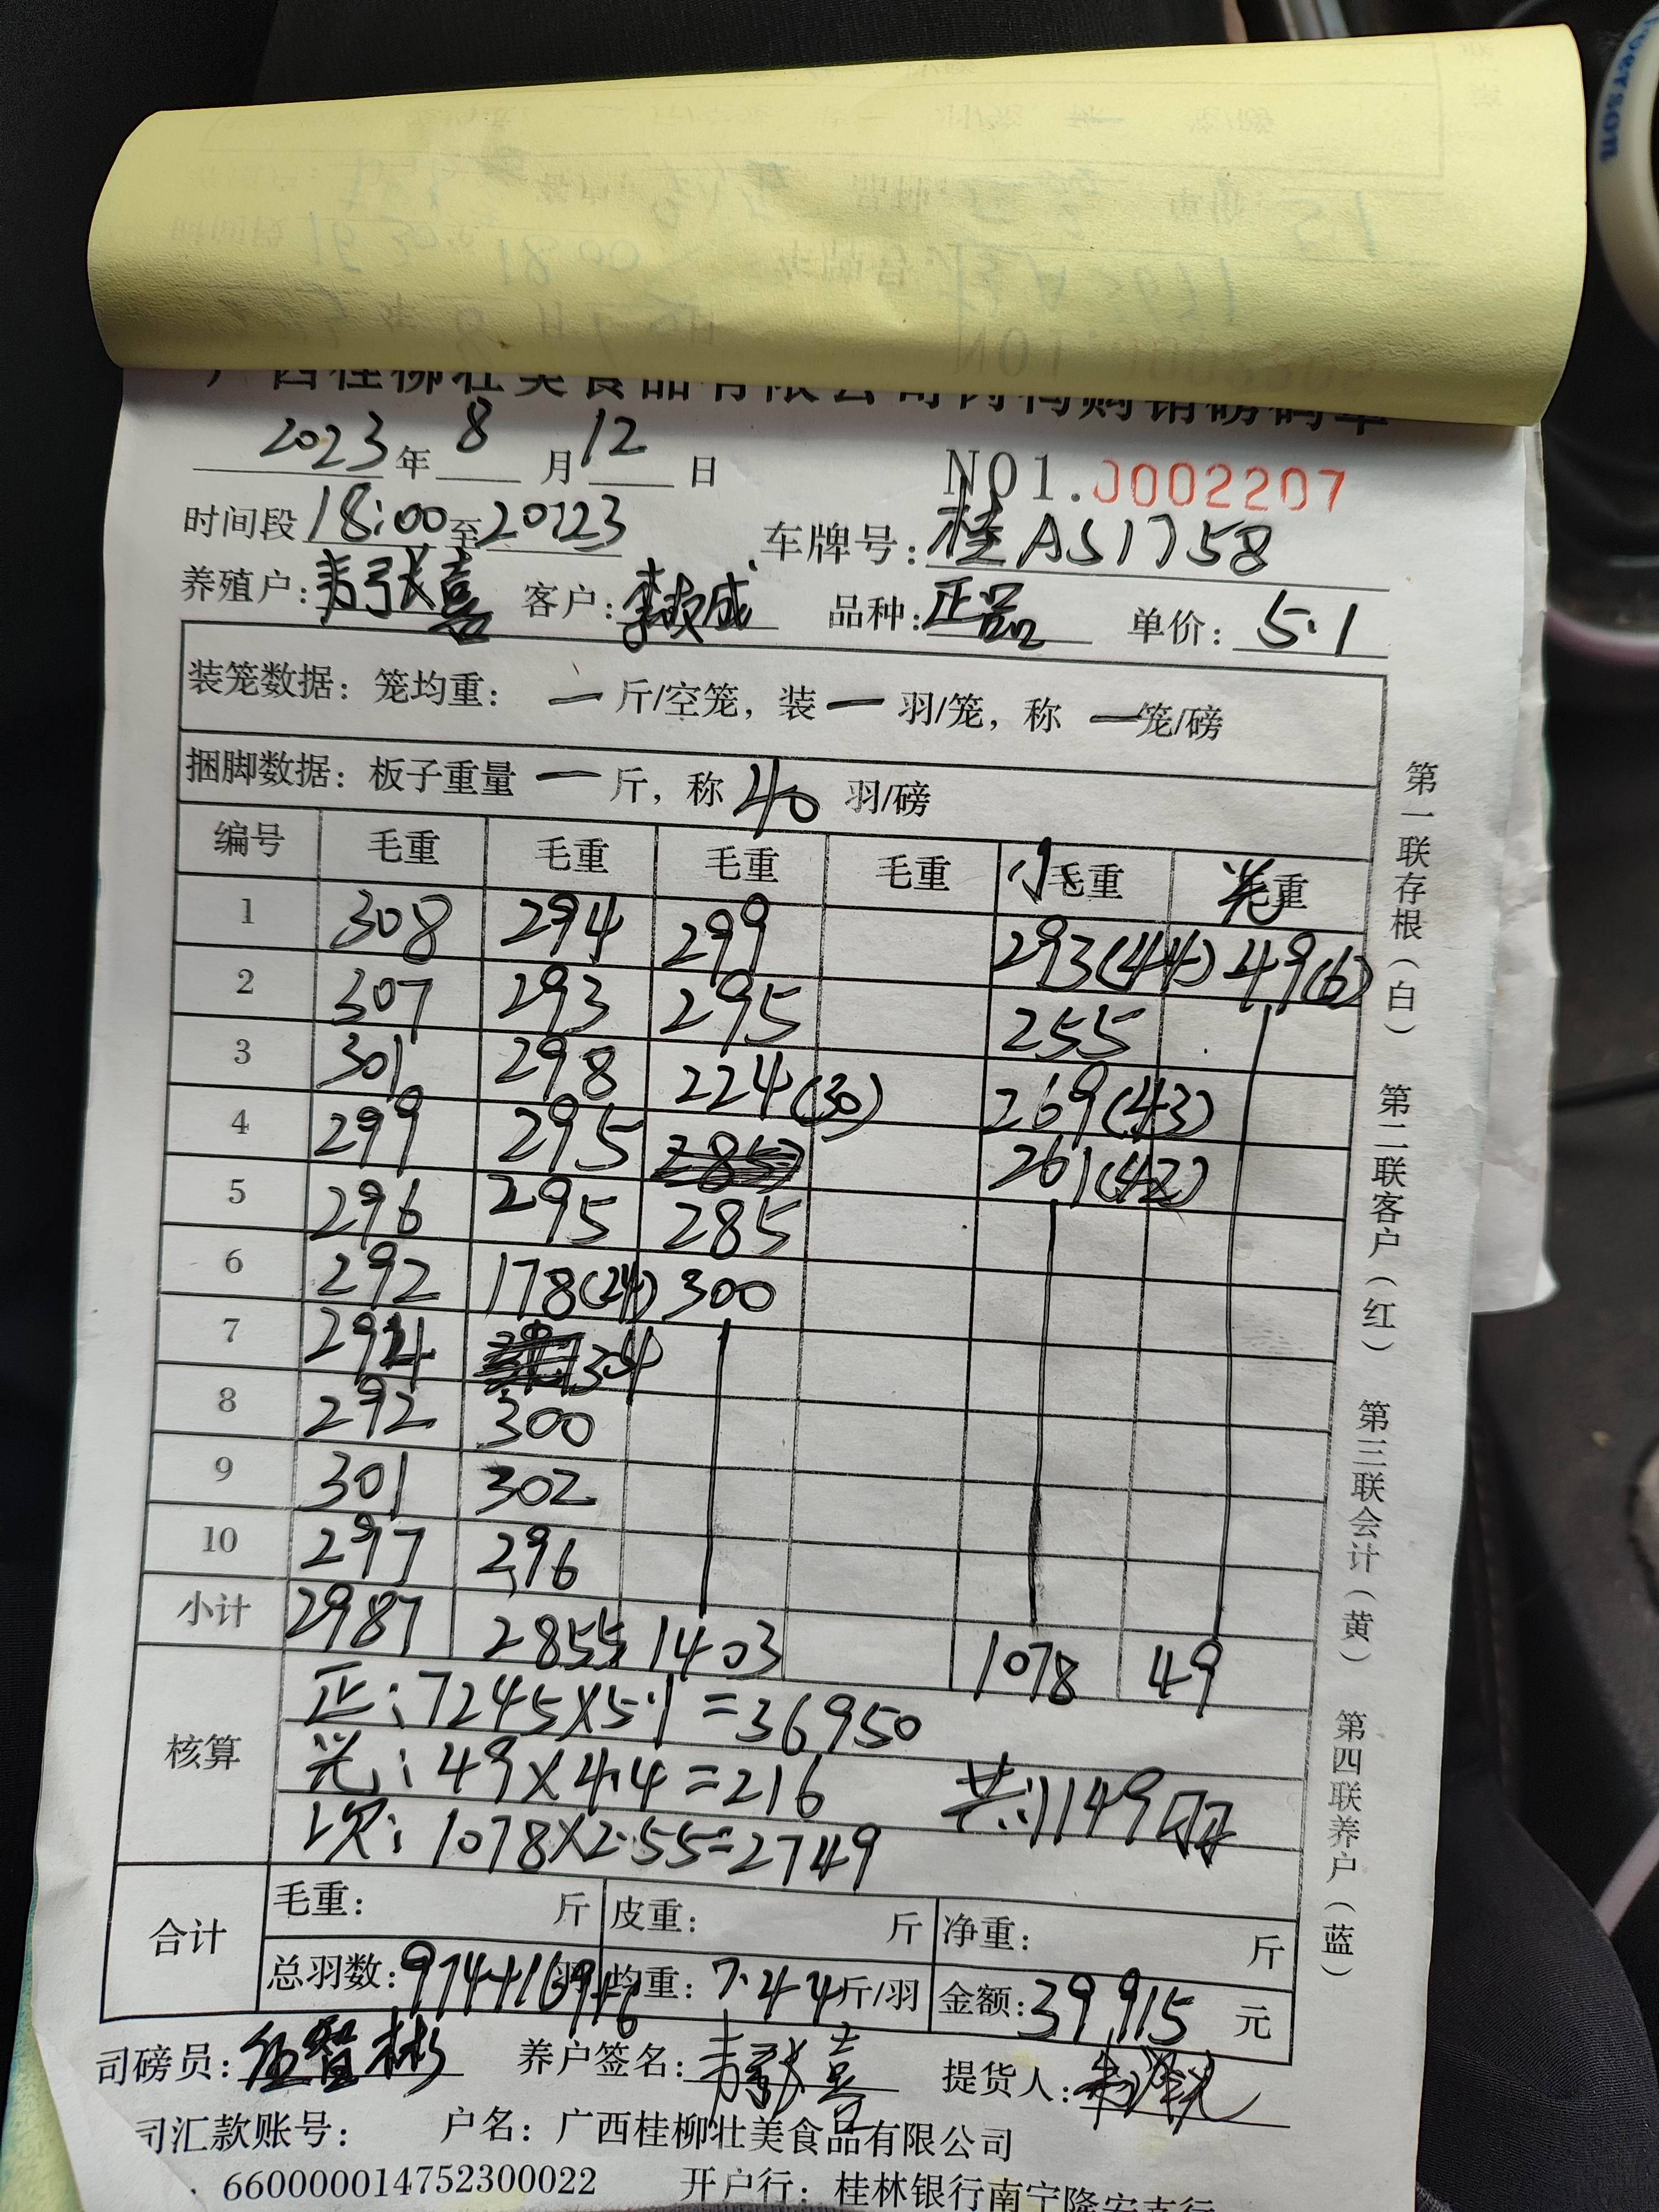 广西桂柳壮美食品有限公司肉鸭购销磅码单
2023年8月12日
NO1.0002207
时间段18:00至20:23 车牌号:桂AS1758
养殖户:韦张喜 客户: 品种:正品 单价:5.1
装笼数据:笼均重:一斤/空笼,装一羽/笼,称一笼/磅
捆脚数据:板子重量一斤,称40羽/磅
编号 毛重 毛重 毛重 毛重 小毛重 光毛重
1 308 294 299 293(44) 49(6)
2 307 293 295 255
3 301 298 224(30) 269(43)
4 299 295 285 261(42)
5 296 295 285
6 292 178(24) 300
7 294 304
8 292 300
9 301 302
10 297 296
小计 2987 2855 1403 1078 49
核算
正:7245×5.1=36950
光:49×4.4=216 共:1149羽
次:1078×2.55=2749
合计
毛重: 斤 皮重: 斤 净重: 斤
总羽数: 羽 均重:7.44斤/羽 金额:39,915元
司磅员:伍智彬 养户签名:韦张喜 提货人:
司汇款账号: 户名:广西桂柳壮美食品有限公司
660000014752300022 开户行:桂林银行南宁隆安支行
第一联存根(白) 第二联客户(红) 第三联会计(黄) 第四联养户(蓝)